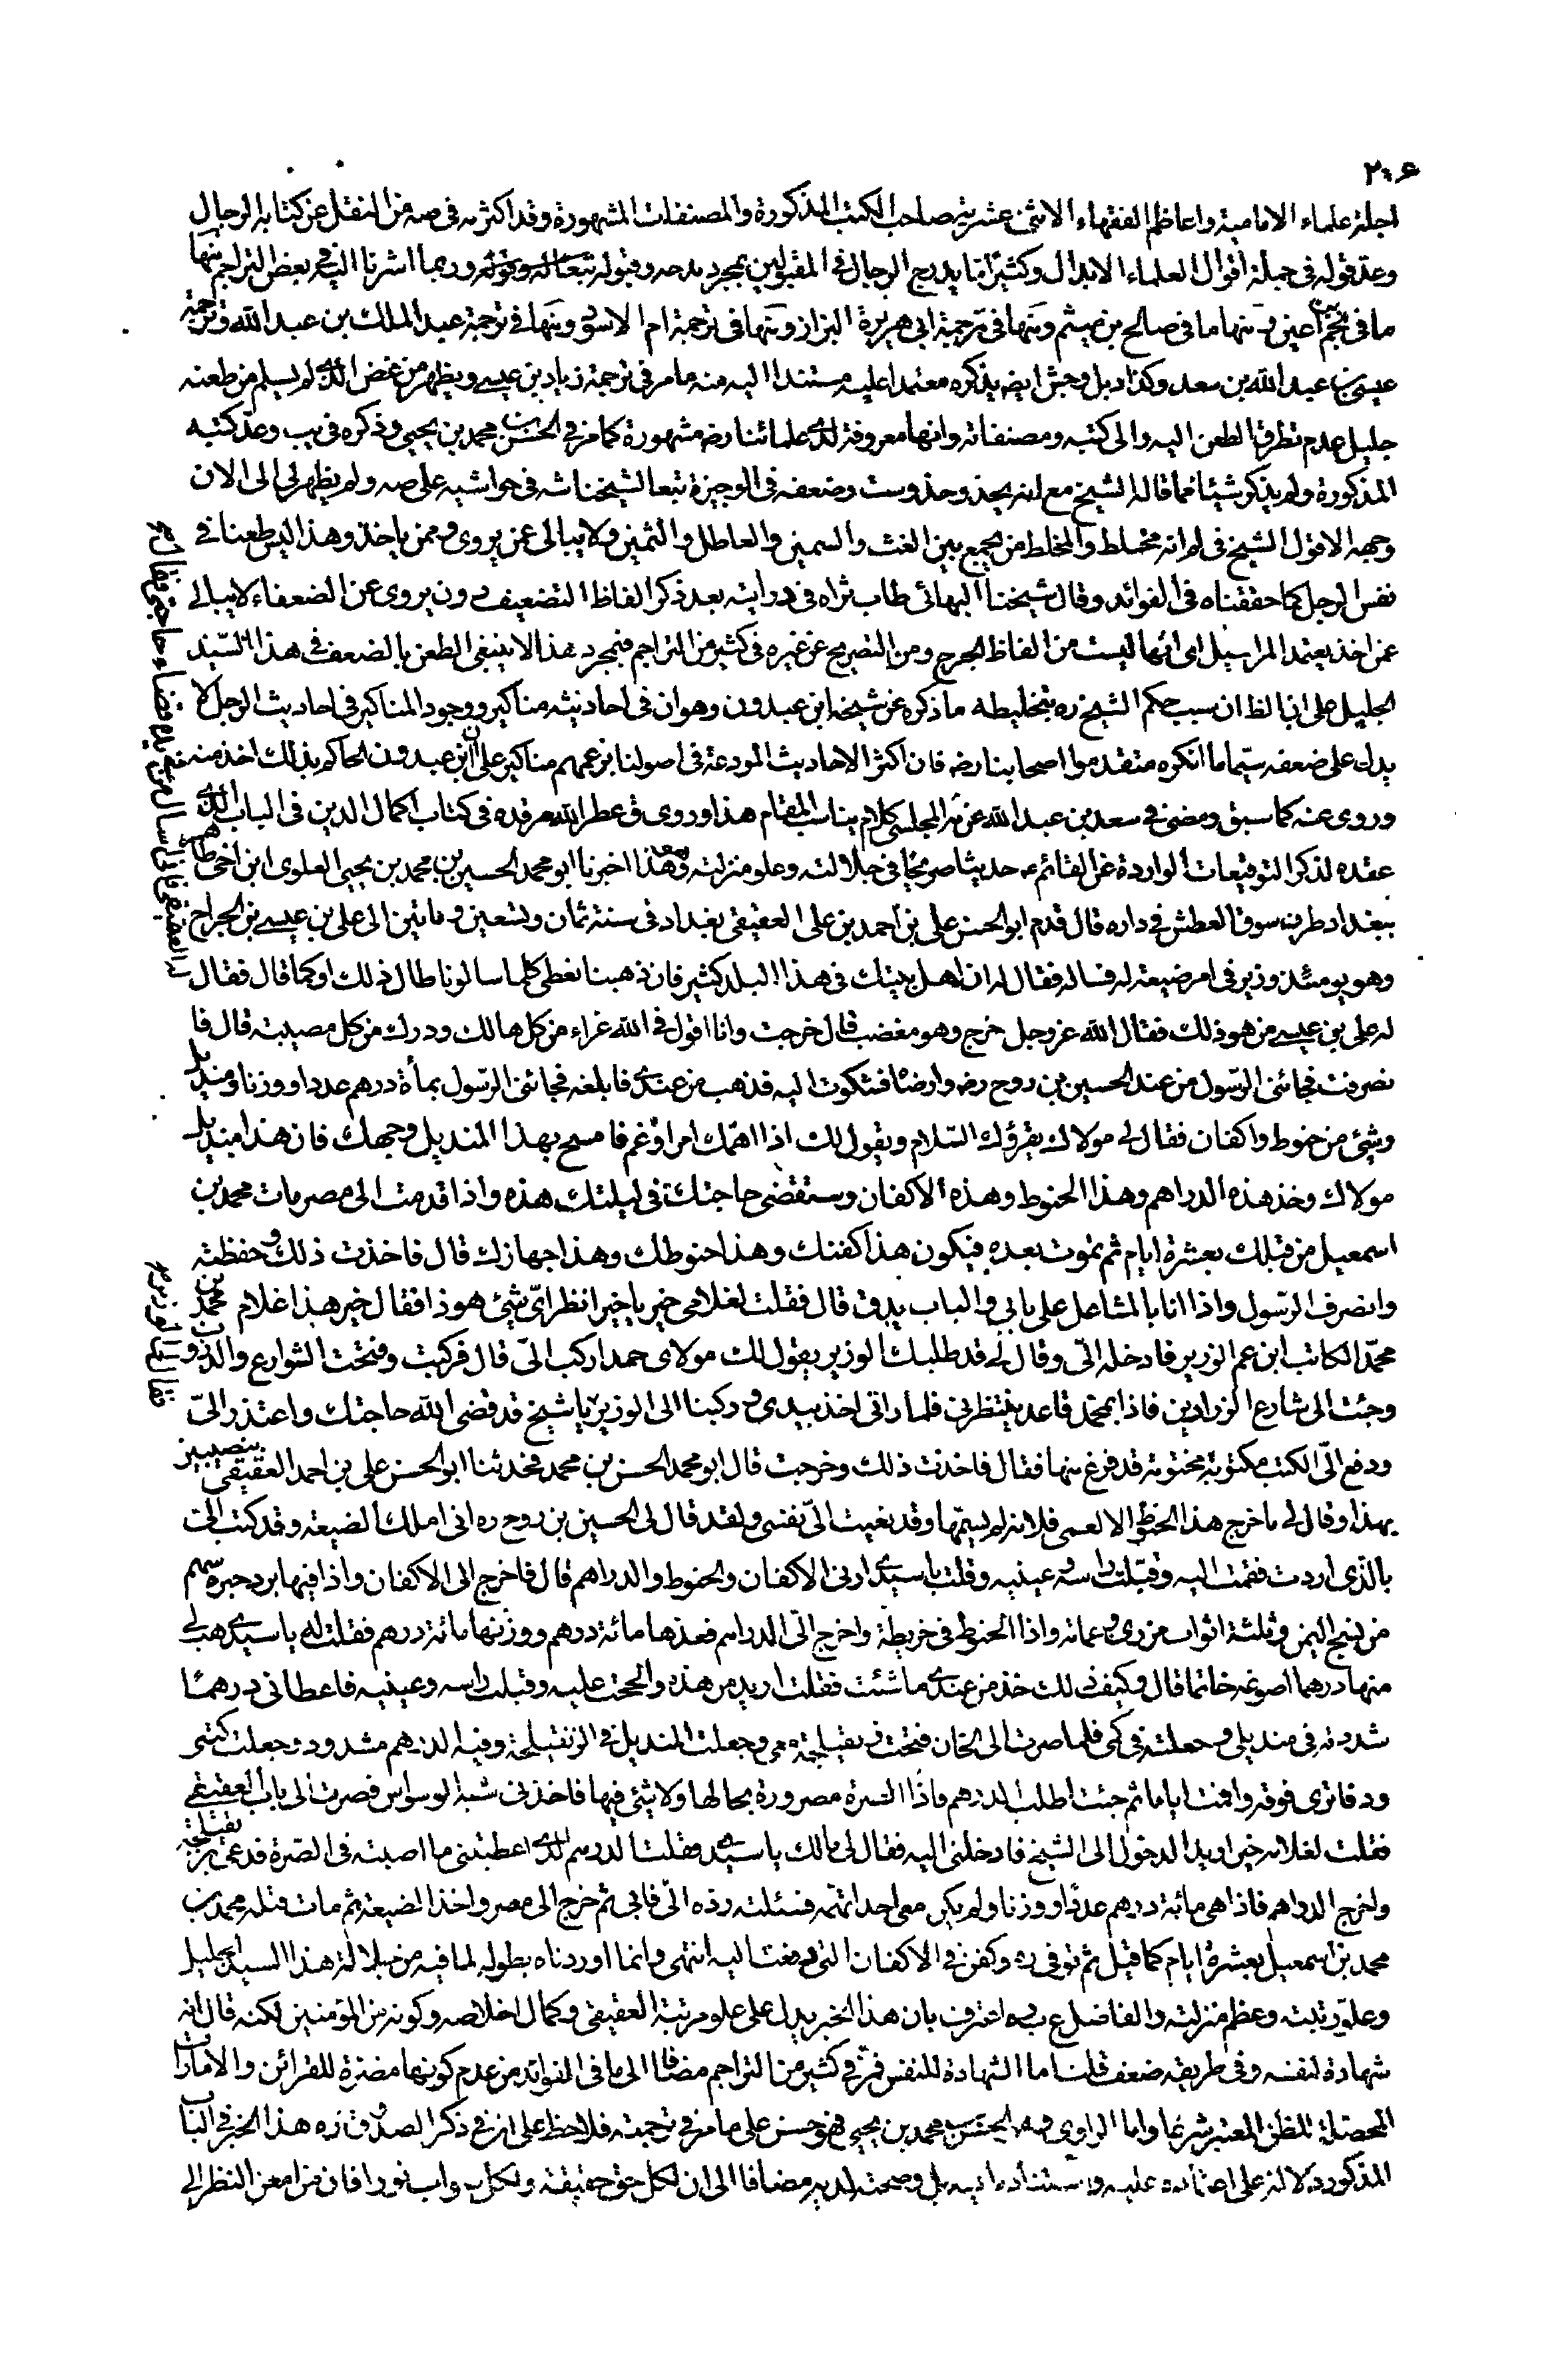 ٢٠۶
اجلة علماء الامامية واعاظم الفقهاء الاثنى عشرية صاحب الكتب المذكورة والمصنفات المشهورة وقد اكثر مه فى صه من النقل عن كتابه الرجال
وعد قوله فى جملة اقوال العلماء الابدال وكثيرا ما يدرج الرجال فى المقبولين بمجرد مدحه وقبوله تبعا له وقوله وربما اشرنا اليه فى بعض التراجم منها
ما فى نجم بن اعين ومنها ما فى صالح بن ميثم ومنها فى ترجمة ابى هريرة البزاز ومنها فى ترجمة ام الاسود ومنها فى ترجمة عبد الملك بن عبد الله وترجمة
عيسى بن عبد الله بن سعد وكذا د بل وجش ايضا يذكره معتمدا عليه مستندا اليه منه ما مر فى ترجمة زياد بن عيسى ويظهر من غض الذى لم يسلم من طعنه
جليل عدم تطرق الطعن اليه والى كتبه ومصنفاته وانها معروفة لدى علمائنا رضه مشهورة كما مر فى الحسن بن محمد بن يحيى وذكره فى ب وعد كتبه
المذكورة ولم يذكر شيئا مما قاله الشيخ مع انه يحذو حذو ست وضعفه فى الوجيزة تبعا لشيخنا شه فى حواشيه على صه ولم يظهر لى الى الان
وجهه الا قول الشيخ فى لم انه مخلط والمخلط من يجمع بين الغث والسمين والعاطل والثمين ولا يبالى عمن يروى وممن ياخذ وهذا ليس طعنا فى
نفس الرجل كما حققناه فى الفوائد وقال شيخنا البهائى طاب ثراه فى درايته بعد ذكر الفاظ التضعيف دون يروى عن الضعفاء لا يبالى
عمن اخذ يعتمد المراسيل اى انها ليست من الفاظ الجرح ومن التصريح عن غيره فى كثير من التراجم فبمجرد هذا لا ينبغى الطعن بالضعف فى هذا السيد
الجليل على ان الظ ان سبب حكم الشيخ ره بتخليطه ما ذكره عن شيخه ابن عبدون وهو ان فى احاديثه مناكير ووجود المناكير فى احاديث الرجل لا
يدل على ضعفه سيما ما انكره متقدموا اصحابنا رضه فان اكثر الاحاديث المودعة فى اصولنا بزعمهم مناكير على ان ابن عبدون الحاكم بذلك اخذ منه
وروى عنه كما سبق ومضى فى سعد بن عبد الله عن المجلسى كلام يناسب المقام هذا وروى ق عطر الله مرقده فى كتاب اكمال الدين فى الباب الذى
عقده لذكر التوقيعات الواردة عن القائم ع حديثا صريحا فى جلالته وعلو منزلته وهو هذا اخبرنا ابو محمد الحسين بن محمد بن يحيى العلوى ابن اخى طاهر
ببغداد طرف سوق العطش فى داره قال قدم ابو الحسن على بن احمد بن على العقيقى بغداد فى سنة ثمان وتسعين وماتين الى على بن عيسى بن الجراح
وهو يومئذ وزير فى امر ضيعة له فساله فقال له ان اهل بيتك فى هذا البلد كثير فان ذهبنا نعطى كلما سالونا طال ذلك او كما قال فقال
له العقيقى فانى اسال من فى يده قضاء حاجتى فقال
له على بن عيسى من هو ذلك فقال الله عز وجل خرج وهو مغضب قال خرجت وانا اقول فى الله عزاء من كل هالك ودرك من كل مصيبة قال فا
نصرفت فجائنى الرسول من عند الحسين بن روح رضه وارضاه فشكوت اليه فذهب من عندى فابلغه فجائنى الرسول بمأة درهم عددا ووزنا ومنديل
وشىء من حنوط واكفان فقال لى مولاك يقرؤك السلام ويقول لك اذا اهمك امر او غم فامسح بهذا المنديل وجهك فان هذا منديل
مولاك وخذ هذه الدراهم وهذا الحنوط وهذه الاكفان وستقضى حاجتك فى ليلتك هذه واذا قدمت الى مصر مات محمد بن
اسمعيل من قبلك بعشرة ايام ثم تموت بعده فيكون هذا كفنك وهذا حنوطك وهذا جهازك قال فاخذت ذلك وحفظته
وانصرف الرسول واذا انا بالمشاعل على بابى والباب يدق قال فقلت لغلامى خير يا خير انظر اى شىء هو ذا فقال خير هذا غلام محمد بن
محمد الكاتب ابن عم الوزير فادخله الى وقال لى قد طلبك الوزير يقول لك مولاى حمد اركب الى قال فركبت وفتحت الشوارع والدروب
وجئت الى شارع الوزادين فاذا بمحمد قاعد ينتظرنى فلما رانى اخذ بيدى وركبنا الى الوزير يا شيخ قد قضى الله حاجتك واعتذر الى
فقال لى الوزير
ودفع الى الكتب مكتوبة مختومة قد فرغ منها فقال فاخذت ذلك وخرجت قال ابو محمد الحسن بن محمد فحدثنا ابو الحسن على بن احمد العقيقى بنصيبين
بهذا وقال لى ما خرج هذا الحنوط الا لعمتى فلانة لم يسمها وقد نعيت الى نفسى ولقد قال لى الحسين بن روح ره انى املك الضيعة وقد كتب الى
بالذى اردت فقمت اليه وقبلت راسه وعينيه وقلت يا سيدى ارنى الاكفان والحنوط والدراهم قال فاخرج الى الاكفان واذا فيها برد حبرة مسهم
من نسج اليمن وثلثة اثواب مروى وعمامة واذا الحنوط فى خريطة واخرج الى الدراهم فعدها مائة درهم ووزنها مائة درهم فقلت له يا سيدى هب لى
منها درهما اصوغه خاتما قال وكيف ذلك خذ من عندى ما شئت فقلت اريد من هذه والححت عليه وقبلت راسه وعينيه فاعطانى درهما
شددته فى منديلى وجعلته فى كمى فلما صرت الى الخان فتحت زنفيلجة معى وجعلت المنديل فى الزنفيلجة وفيه الدرهم مشدود وجعلت كتبى
ودفاترى فوقه واقمت اياما ثم جئت اطلب الدرهم فاذا الصرة مصرورة بحالها ولا شىء فيها فاخذنى شبه الوسواس فصرت الى باب العقيقى
فقلت لغلامه خير اريد الدخول الى الشيخ فادخلنى اليه فقال لى مالك يا سيدى فقلت الدرهم الذى اعطيتنى ما اصبته فى الصرة فدعى بزنفيلجة
واخرج الدراهم فاذا هى مائة درهم عددا ووزنا ولم يكن معى احد اتهمه فسئلته رده الى فابى ثم خرج الى مصر واخذ الضيعة ثم مات قبله محمد بن
محمد بن اسمعيل بعشرة ايام كما قيل ثم توفى ره وكفن فى الاكفان التى دفعت اليه انتهى وانما اوردناه بطوله لما فيه من جلالة هذا السيد الجليل
وعلو رتبته وعظم منزلته والفاضل ع ب ره اعترف بان هذا الخبر يدل على علو مرتبة العقيقى وكمال اخلاصه وكونه من المؤمنين لكنه قال انه
شهادة لنفسه وفى طريقه ضعف قلت اما الشهادة للنفس فمر فى كثير من التراجم مضافا الى ما فى الفوائد من عدم كونها مضرة للقرائن والامارات
المحصلة للظن المعتبر شرعا واما الراوى وهو الحسن بن محمد بن يحيى فهو حسن على ما مر فى ترجمته فلاحظ على ان فى ذكر الصدوق ره هذا الخبر فى الباب
المذكور دلالة على اعتماده عليه واستناده اليه بل وصحته لديه مضافا الى ان لكل حق حقيقة ولكل صواب نورا فان من امعن النظر الى